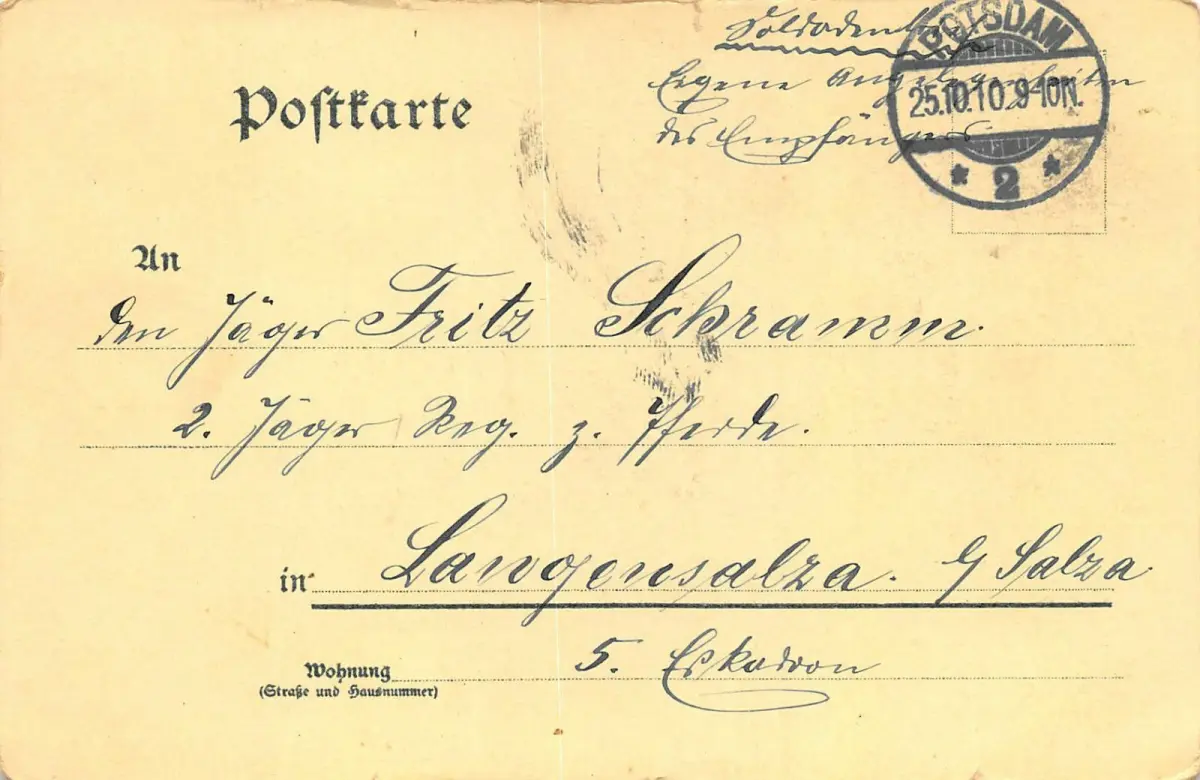 Soldadenbrief
Eigene Angelegenheiten
des Empfängers
POTSDAM
25.10.10.9-10N.
* 2 *
Postkarte
An
den Jäger Fritz Schramm.
2. Jäger Reg. z. Pferde.
in Langensalza. b/ Salza.
Wohnung 5. Eskadron
(Straße und Hausnummer)